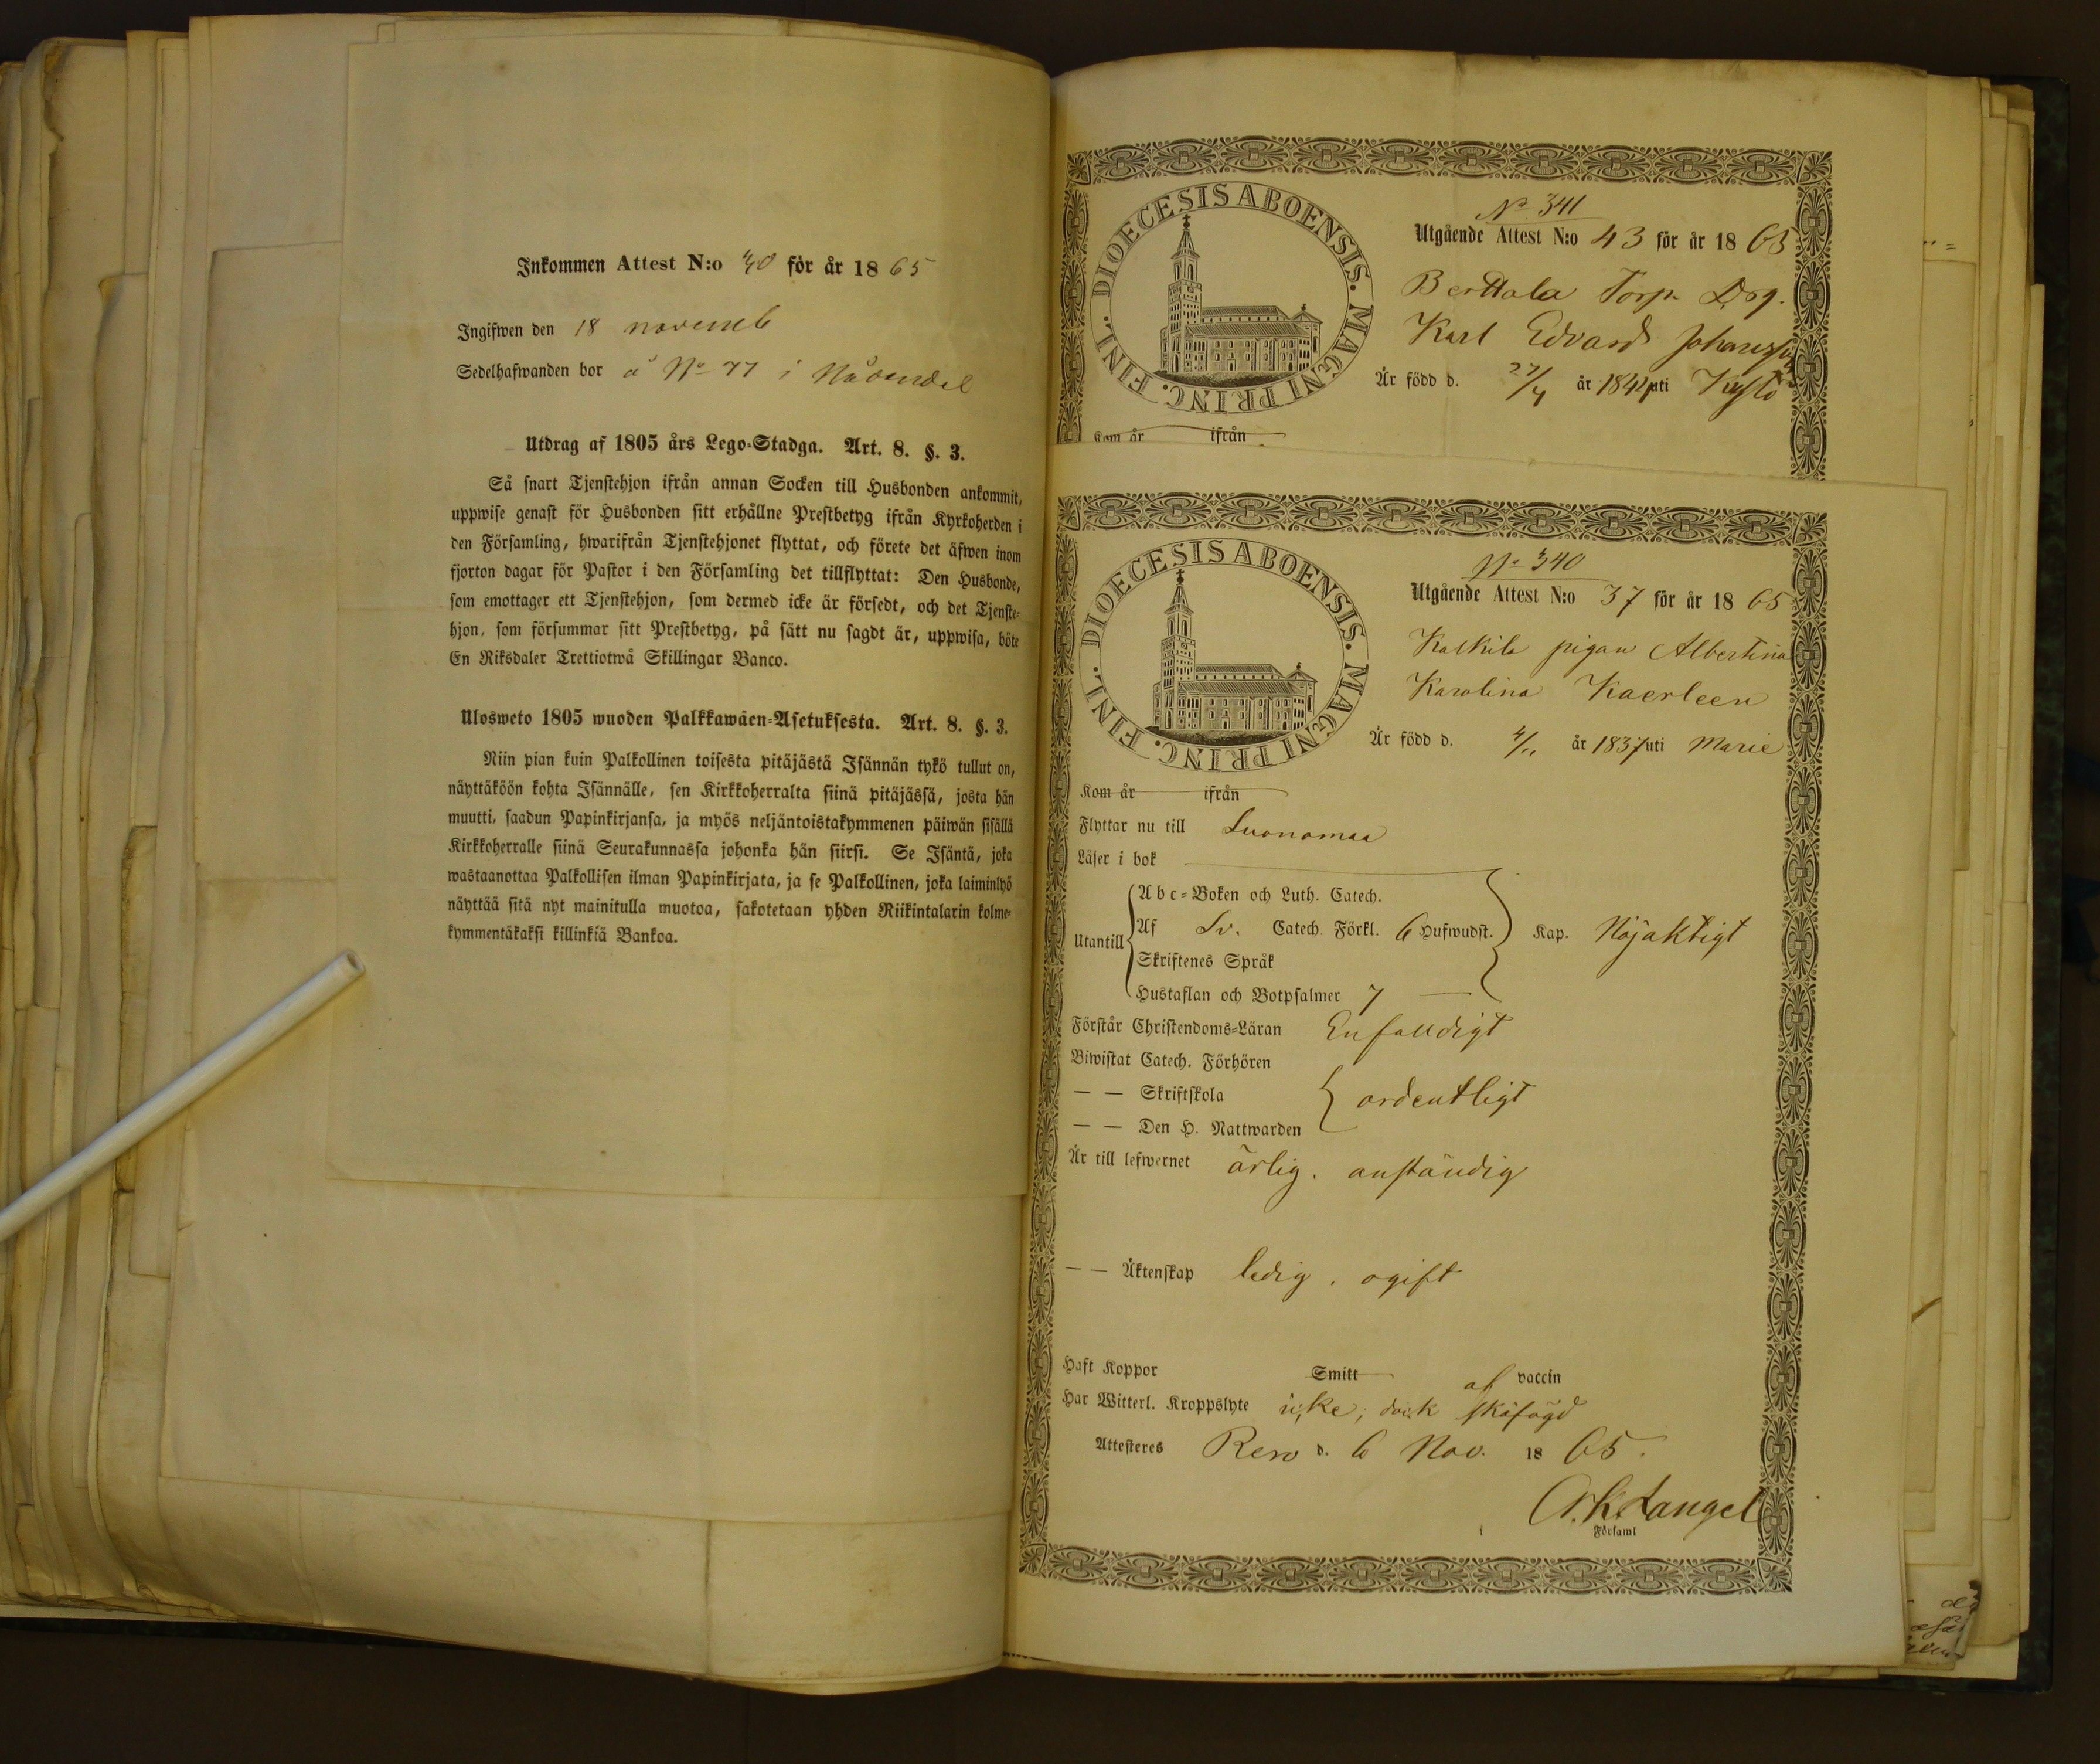 Inkommen Attest N:o 40 för år 1865
Ingifwen den 18 novemb
Sedelhafwanden bor å No 77 i Nådendal
Utdrag af 1805 års Lego-Stadga. Art. 8. §. 3.
Så snart Tjenstehjon ifrån annan Socken till Husbonden ankommit,
uppwise genast för Husbonden sitt erhållne Prestbetyg ifrån Kyrkoherden i
den Församling, hwarifrån Tjenstehjonet flyttat, och förete det äfwen inom
fjorton dagar för Pastor i den Församling det tillflyttat: Den Husbonde,
som emottager ett Tjenstehjon, som dermed icke är försedt, och det Tjenste-
hjon, som försummar sitt Prestbetyg, på sätt nu sagdt är, uppwisa, böte
En Riksdaler Trettiotwå Skillingar Banco.
Ulosweto 1805 wuoden Palkkawäen-Asetuksesta. Art. 8. §. 3.
Niin pian kuin Palkollinen toisesta pitäjästä Isännän tykö tullut on,
näyttäköön kohta Isännälle, sen Kirkkoherralta siinä pitäjässä, josta hän
muutti, saadun Papinkirjansa, ja myös neljäntoistakymmenen päiwän sisällä
Kirkkoherralle siinä Seurakunnassa johonka hän siirsi. Se Isäntä, joka
wastaanottaa Palkollisen ilman Papinkirjata, ja se Palkollinen, joka laiminlyö
näyttää sitä nyt mainitulla muotoa, sakotetaan yhden Riikintalarin kolme-
kymmentäkaksi killinkiä Bankoa.
DIOECESIS ABOENSIS. MAGNI PRINC. FINL.
No 341
Utgående Attest N:o 43 för år 1865
Berttala Torp. Drg.
Karl Edvard Johansson
Är född d. 27/4 år 1842 uti
Kom år ifrån
DIOECESIS ABOENSIS. MAGNI PRINC. FINL.
No 340
Utgående Attest N:o 37 för år 1865
Kalkila pigan Albertina
Karolina Kaerleen
Är född d. 4/11 år 1837 uti Marie
Kom år ifrån
Flyttar nu till Luonomaa
Läser i bok
Abc-Boken och Luth. Catech.
Utantill Af Sv. Catech. Förkl. 6 Hufwudst. Kap. Nöjaktigt
Skriftenes Språk
Hustaflan och Botpsalmer 7
Förstår Christendoms-Läran Enfalldigt
Biwistat Catech. Förhören
— — Skriftskola ordentligt
— — Den H. Nattwarden
Är till lefwernet ärlig. anständig
— — Äktenskap ledig. ogift
Haft Koppor Smitt af vaccin
Har Witterl. Kroppslyte icke; dock
Attesteres Reso d. 6 Nov. 1865.
Langel
i Församl